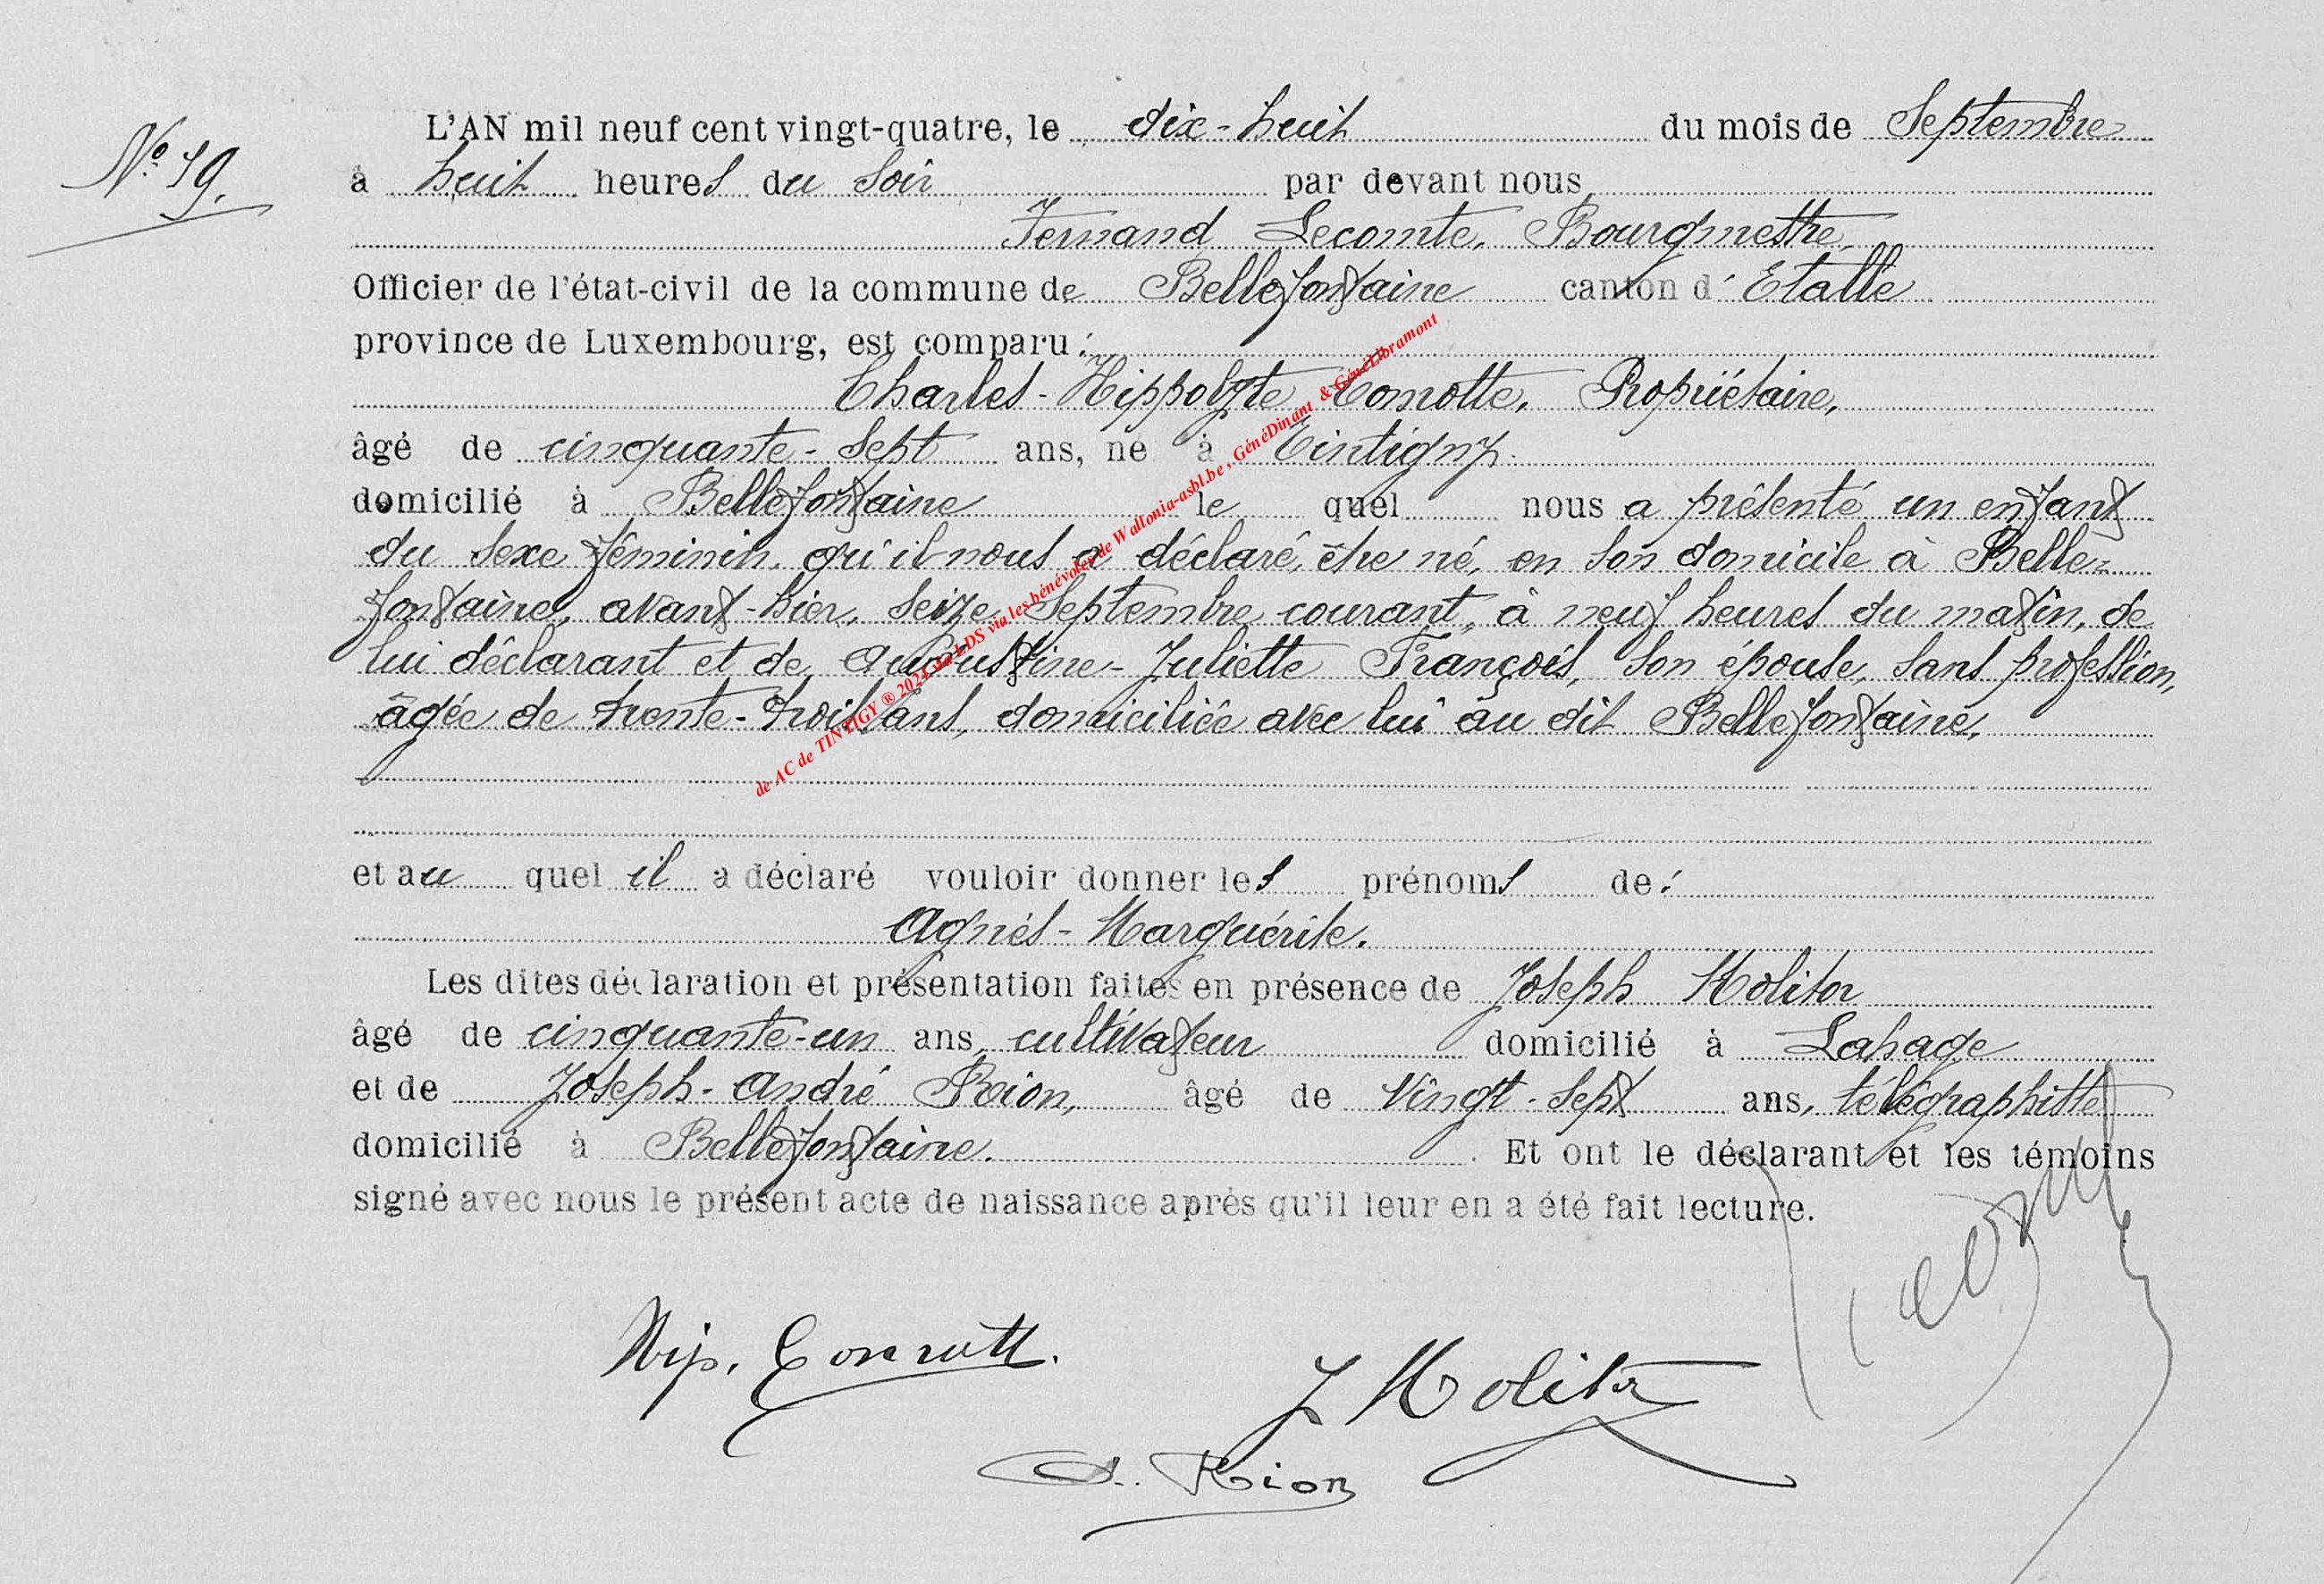 N° 19.
L'AN mil neuf cent vingt-quatre, le dix-huit du mois de Septembre
à huit heures du soir par devant nous
Fernand Lecomte, Bourgmestre,
Officier de l'état-civil de la commune de Bellefontaine canton d'Etalle
province de Luxembourg, est comparu :
Charles-Hippolyte Comotte, Propriétaire,
âgé de cinquante-sept ans, né à Tintigny
domicilié à Bellefontaine le quel nous a présenté un enfant
du sexe féminin, qu'il nous a déclaré, être né, en son domicile à Belle=
fontaine, avant-hier, seize Septembre courant, à neuf heures du matin, de
lui déclarant et de Augustine-Juliette François, son épouse, sans profession,
âgée de trente-trois ans, domiciliée avec lui au dit Bellefontaine,
et au quel il a déclaré vouloir donner les prénoms de :
Agnès-Marguérite.
Les dites déclaration et présentation faites en présence de Joseph Molitor
âgé de cinquante-un ans, cultivateur domicilié à Lahage
et de Joseph-André Rion, âgé de vingt-sept ans, télégraphiste
domicilié à Bellefontaine. Et ont le déclarant et les témoins
signé avec nous le présent acte de naissance après qu'il leur en a été fait lecture.
Hip. Comott.
J Molitor
A. Rion
de AC de TINTIGY ® 2024 via LDS via les bénévoles de Wallonia-asbl.be, GénéDinant & GénéLibramont